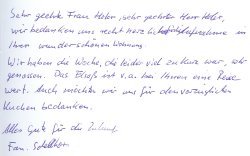 Sehr geehrte Frau Heler, sehr geehrter Herr Heler,
wir bedanken uns recht herzlich für die Aufnahme in
Ihrer wunderschönen Wohnung.
Wir haben die Woche, die leider viel zu kurz war, sehr
genossen. Das Elsaß ist v.a. bei Ihnen eine Reise
wert. Auch möchte wir uns für den vorzüglichen
Kuchen bedanken.
Alles Gute für die Zukunft
Fam.